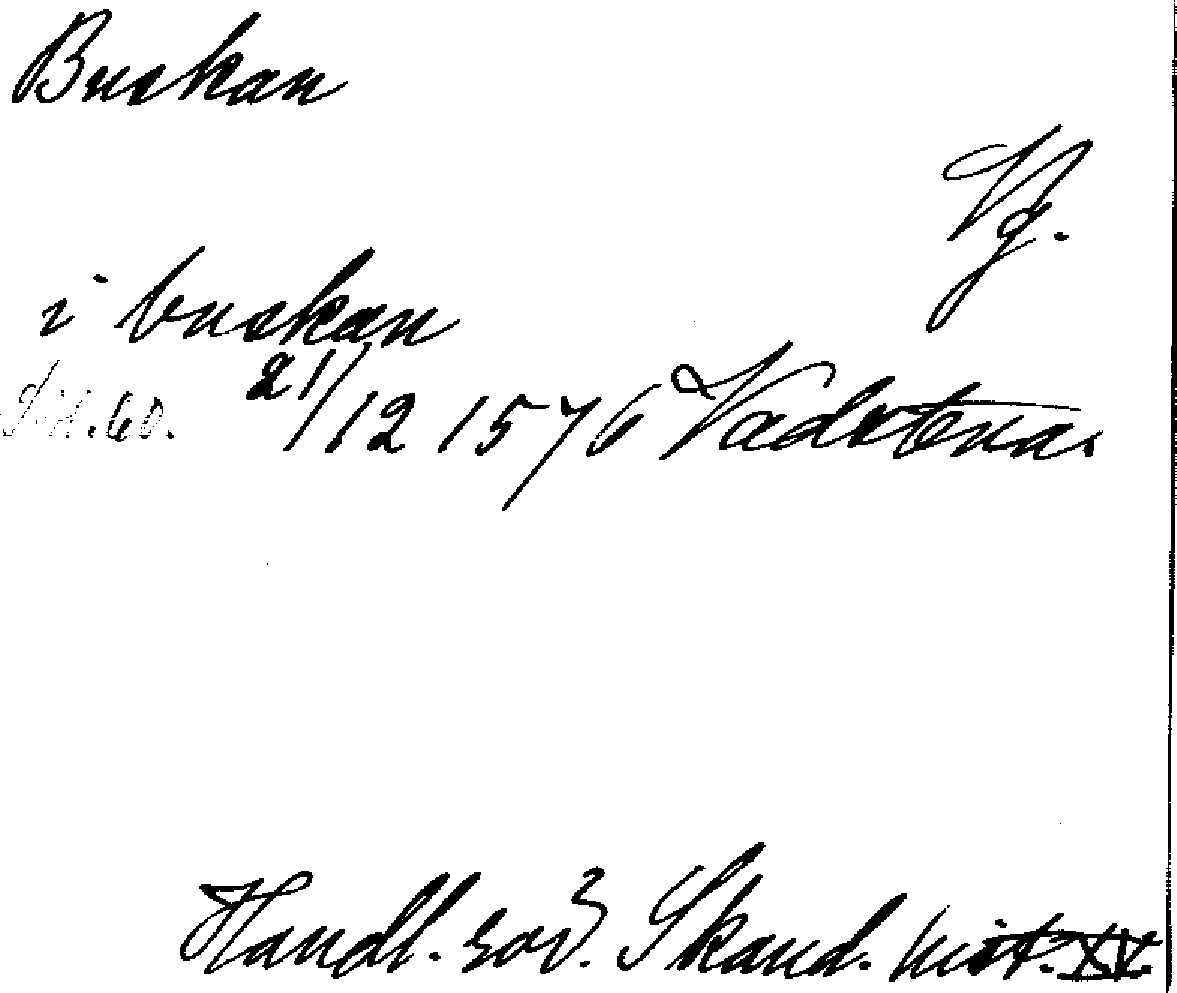 Buskan
Vg.
i buskan
21/12 1576 Vadstena.
Handl. rör. Skand. hist. XV.